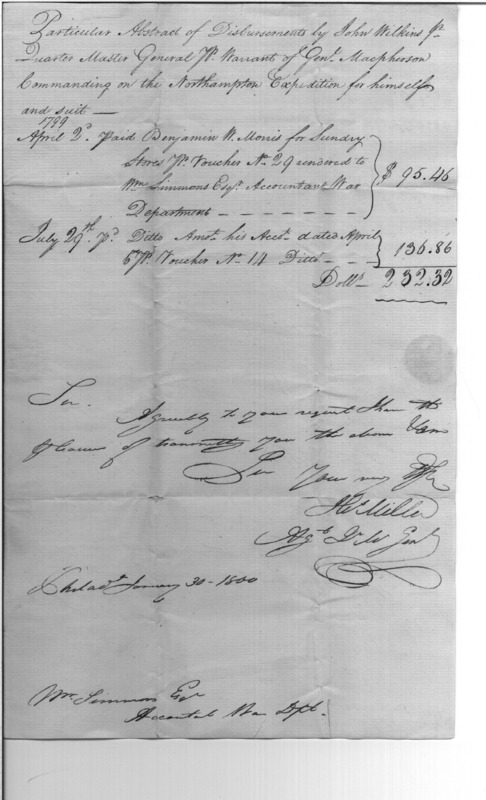 Particular Abstract of Disbursements by John Wilkins Jr
Quarter Master General Pr. Warrant of Genl. Macpherson
Commanding on the Northampton Expedition for himself
and suit —
1799
April 2d. Paid Benjamin W. Morris for Sundry
Stores Pr. Voucher No. 29 rendered to
Wm Simmons Esqr. Accountant War
Department - - - - - -
$ 95.46
July 29th. Pd Ditto Amot. his Acct. dated April
6 Pr. Voucher No 14 Ditto - - -
136.86
Dolls - 232.32
Sir.
Agreeably to your request I have the
pleasure of transmitting you the above
I am
Sir Your very
Hy. Miller
Agt. Qr. Mr Genl
Philada. January 30 - 1800
Wm Simmons Esqr
Accountant War Dpt.